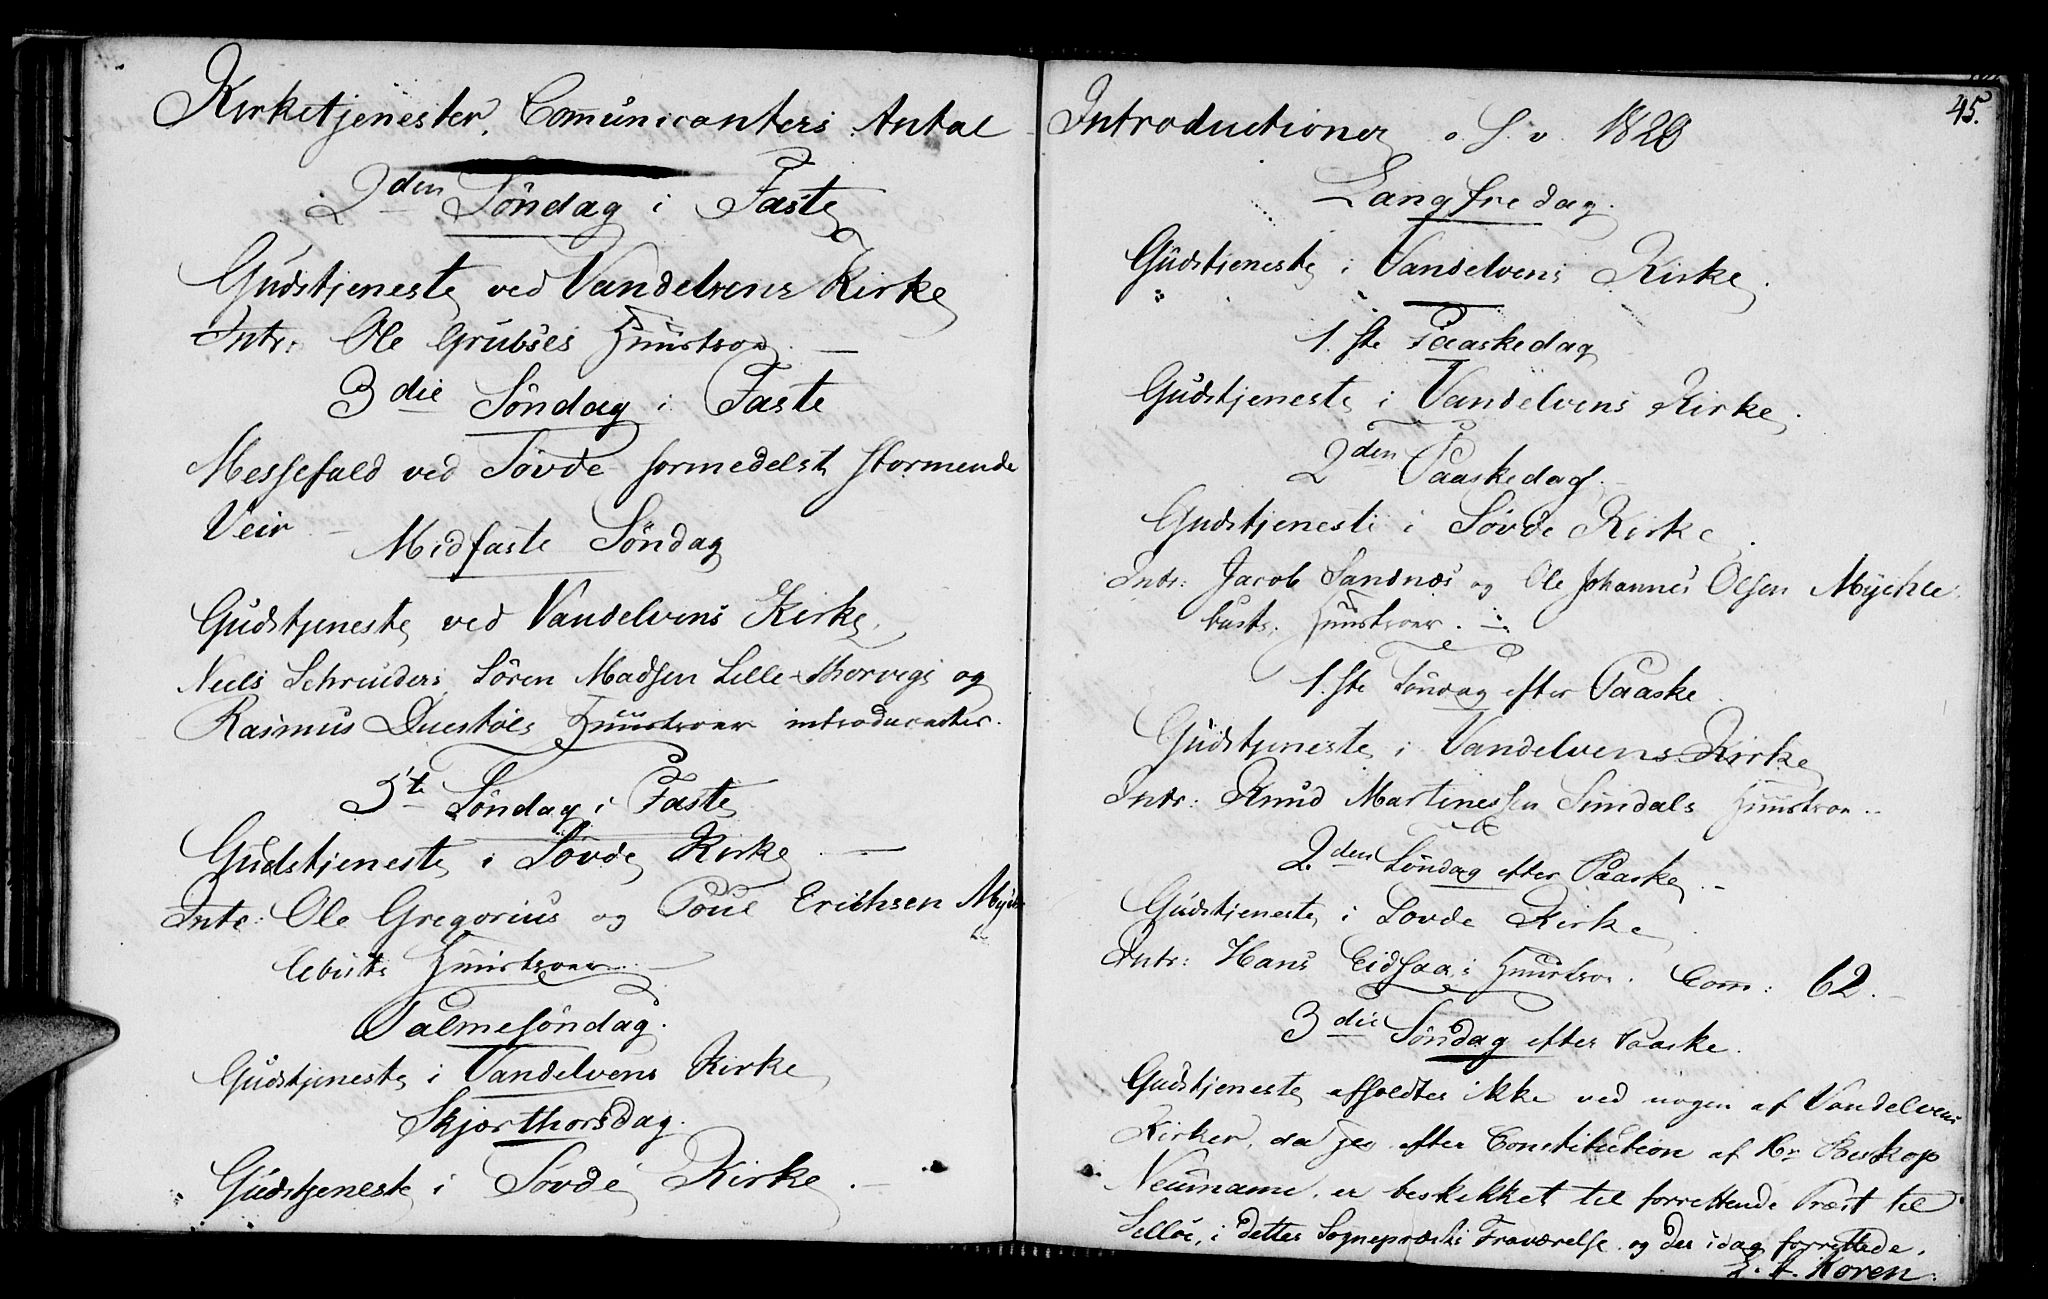 Kirketjenester, Communicanters Antal
2den Søndag i Faste
Gudstjeneste ved Vandelvens Kirke
Intr: Ole Grubses Huustroe. —
3die Søndag i Faste
Messefald ved Søvde formedelst stormende
Veir —
Midfaste Søndag
Gudstjeneste ved Vandelvens Kirke,
Niels Schreuders, Søren Madsen Lille og
Rasmus Huustroer introducertes.
5te Søndag i Faste
Gudstjeneste i Søvde Kirke —
Intr: Ole Gregorius og Poul Erichsen Myck-
lebusts Huustroer. —
Palmesøndag.
Gudstjeneste i Vandelvens Kirke
Skjærthorsdag.
Gudstjeneste i Søvde Kirke. —
Introductioner o. s. v. 1828
45.
Langfredag.
Gudstjeneste i Vandelvens Kirke.
1.ste Paaskedag
Gudstjeneste i Vandelvens Kirke.
2den Paaskedag.
Gudstjeneste i Søvde Kirke.
Intr: Jacob Sandnæs og Ole Johannes Olsen Myckle-
busts Huustroer. —
1.ste Søndag efter Paaske.
Gudstjeneste i Vandelvens Kirke
Intr: Knud Martinessen Sundals Huustroe.
2.den Søndag efter Paaske. —
Gudstjeneste i Søvde Kirke.
Intr: Hans Eidsaa's Huustroe. Com: 62. —
3die Søndag efter Paaske.
Gudstjeneste affholdtes ikke ved nogen af Vandelvens
Kirker, da jeg efter Constitution af Hr Biskop
Neumann, er beskikket til forrettende Præst til
Selløe, i dettes Sognepræsts Fraværelse og der idag forrettede.
Koren.